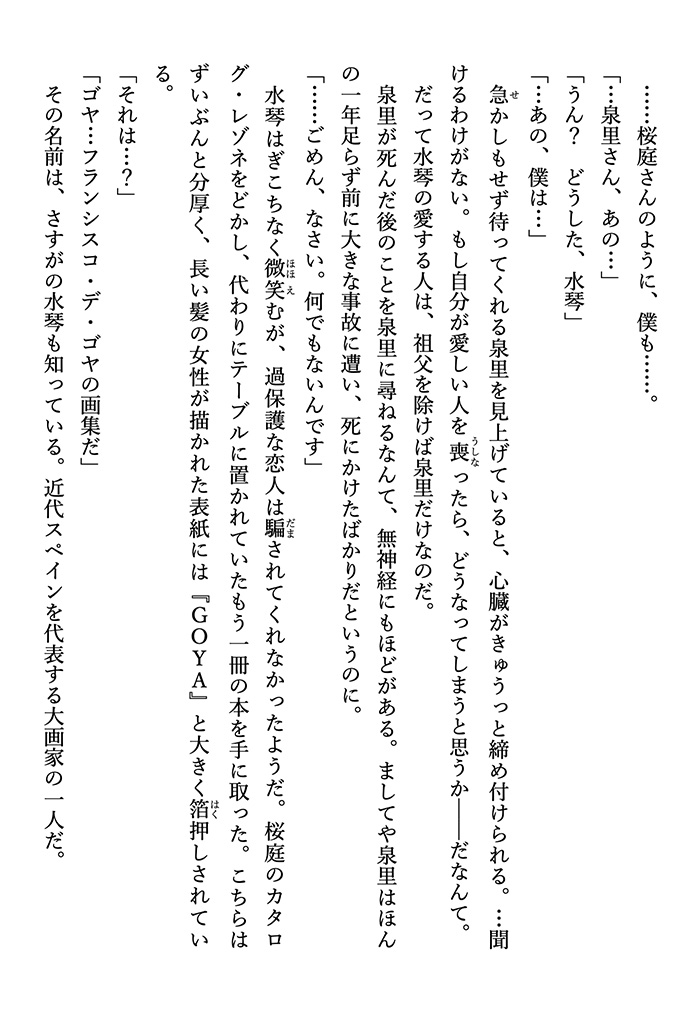 ……桜庭さんのように、僕も……。
「…泉里さん、あの…」
「うん？　どうした、水琴」
「…あの、僕は…」
急かしもせず待ってくれる泉里を見上げていると、心臓がきゅうっと締め付けられる。…聞
けるわけがない。もし自分が愛しい人を喪ったら、どうなってしまうと思うか――だなんて。
だって水琴の愛する人は、祖父を除けば泉里だけなのだ。
泉里が死んだ後のことを泉里に尋ねるなんて、無神経にもほどがある。ましてや泉里はほん
の一年足らず前に大きな事故に遭い、死にかけたばかりだというのに。
「……ごめん、なさい。何でもないんです」
水琴はぎこちなく微笑むが、過保護な恋人は騙されてくれなかったようだ。桜庭のカタロ
グ・レゾネをどかし、代わりにテーブルに置かれていたもう一冊の本を手に取った。こちらは
ずいぶんと分厚く、長い髪の女性が描かれた表紙には『GOYA』と大きく箔押しされてい
る。
「それは…？」
「ゴヤ…フランシスコ・デ・ゴヤの画集だ」
その名前は、さすがの水琴も知っている。近代スペインを代表する大画家の一人だ。